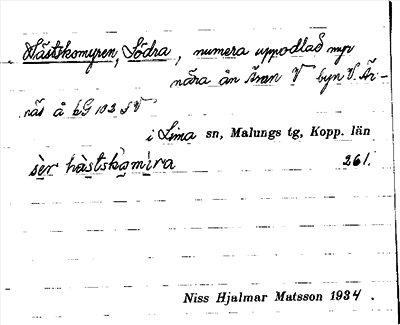 Hästskomyren, Södra, numera uppodlad myr
nära ån Ånn V byn V. År-
näs å bG 102 SV
i Lima sn, Malungs tg, Kopp. län
sèr hàstskomira 261.
Niss Hjalmar Matsson 1934.